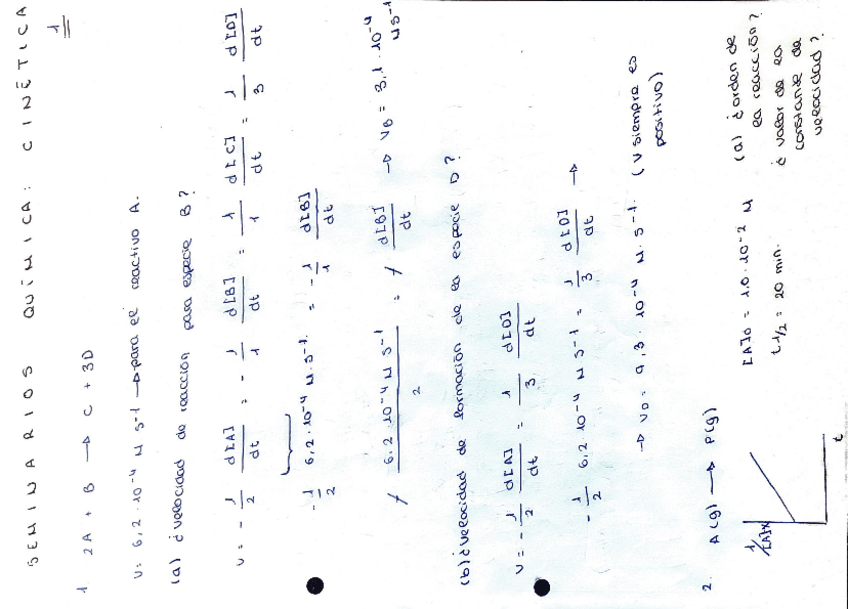 SEMINARIOS QUÍMICA: CINÉTICA
1
1 2A + B → C + 3D
v= 6,2 · 10-4 M s-1 → para el reactivo A.
(a) ¿velocidad de reacción para especie B?
v = - 1/2 d[A]/dt = - 1/1 d[B]/dt = 1/1 d[C]/dt = 1/3 d[D]/dt
- 1/2 6,2 · 10-4 M s-1. = - 1/1 d[B]/dt
6,2 · 10-4 M s-1 / 2 = d[B]/dt → vB = 3,1 · 10-4 M s-1
(b) ¿velocidad de formación de la especie D?
v = - 1/2 d[A]/dt = 1/3 d[D]/dt
- 1/2 6,2 · 10-4 M s-1 = 1/3 d[D]/dt →
→ vD = 9,3 · 10-4 M · s-1. (v siempre es
positivo)
2. A(g) → P(g)
1/[A]
t
[A]0 = 1,0 · 10-2 M
t1/2 = 20 min.
(a) ¿orden de
la reacción?
¿ valor de la
constante de
velocidad?